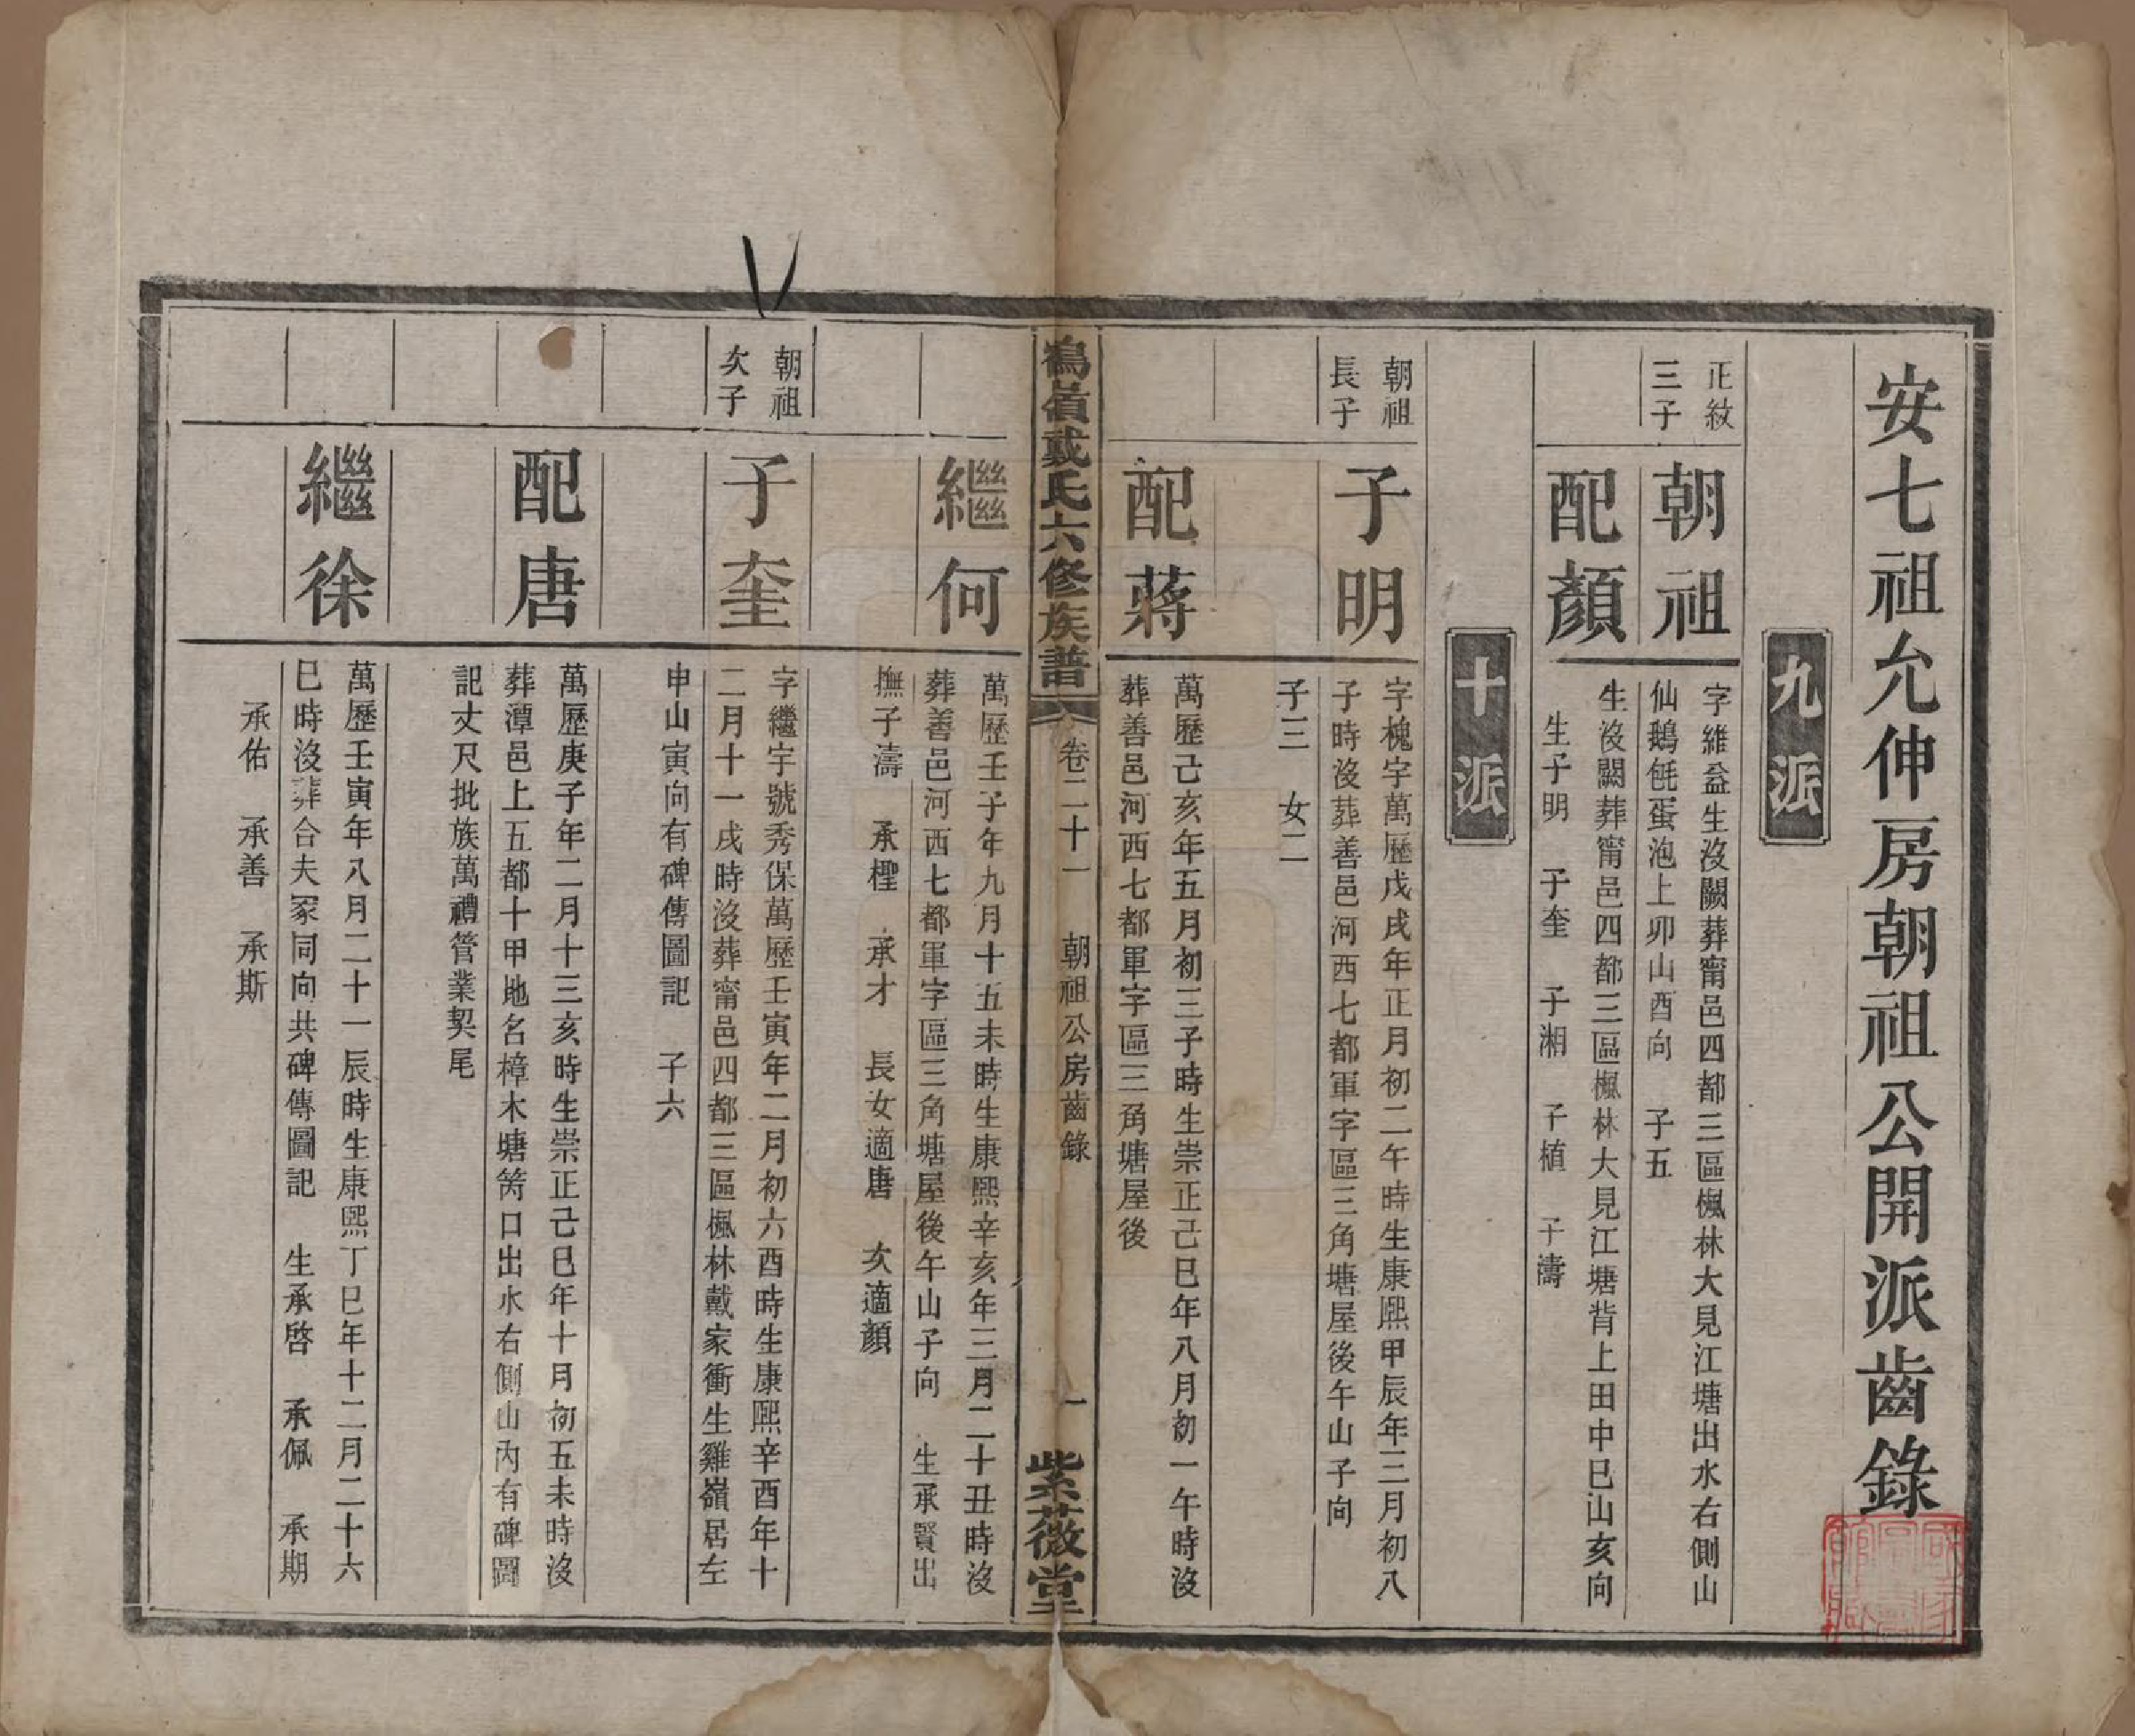 安七祖允伸房朝祖公開派齒錄
九派
正紋
三子
朝祖
字維益生沒闕葬甯邑四都三區楓林大見江塘出水右側山
仙鵝毻蛋泡上卯山酉向　子五
配顏
生沒闕葬甯邑四都三區楓林大見江塘背上田中巳山亥向
生子明　子奎　子湘　子植　子濤
十派
朝祖
長子
子明
字槐宇萬歷戊戌年正月初二午時生康熙甲辰年三月初八
子時沒葬善邑河西七都軍字區三角塘屋後午山子向
子三　女二
配蔣
萬歷己亥年五月初三子時生崇正己巳年八月初一午時沒
葬善邑河西七都軍字區三角塘屋後
鵝嶺戴氏六修族譜
卷二十一　朝祖公房齒錄
一
紫薇堂
繼何
萬歷壬子年九月十五未時生康熙辛亥年三月二十丑時沒
葬善邑河西七都軍字區三角塘屋後午山子向　生承賢出
撫子濤　承檉　承才　長女適唐　次適顏
朝祖
次子
子奎
字繼宇號秀保萬歷壬寅年二月初六酉時生康熙辛酉年十
二月十一戌時沒葬甯邑四都三區楓林戴家衝生雞嶺居左
申山寅向有碑傳圖記　子六
配唐
萬歷庚子年二月十三亥時生崇正己巳年十月初五未時沒
葬潭邑上五都十甲地名樟木塘筲口出水右側山內有碑圖
記丈尺批族萬禮管業契尾
繼徐
萬歷壬寅年八月二十一辰時生康熙丁巳年十二月二十六
巳時沒葬合夫冢同向共碑傳圖記　生承啓　承佩　承期
承佑　承善　承斯